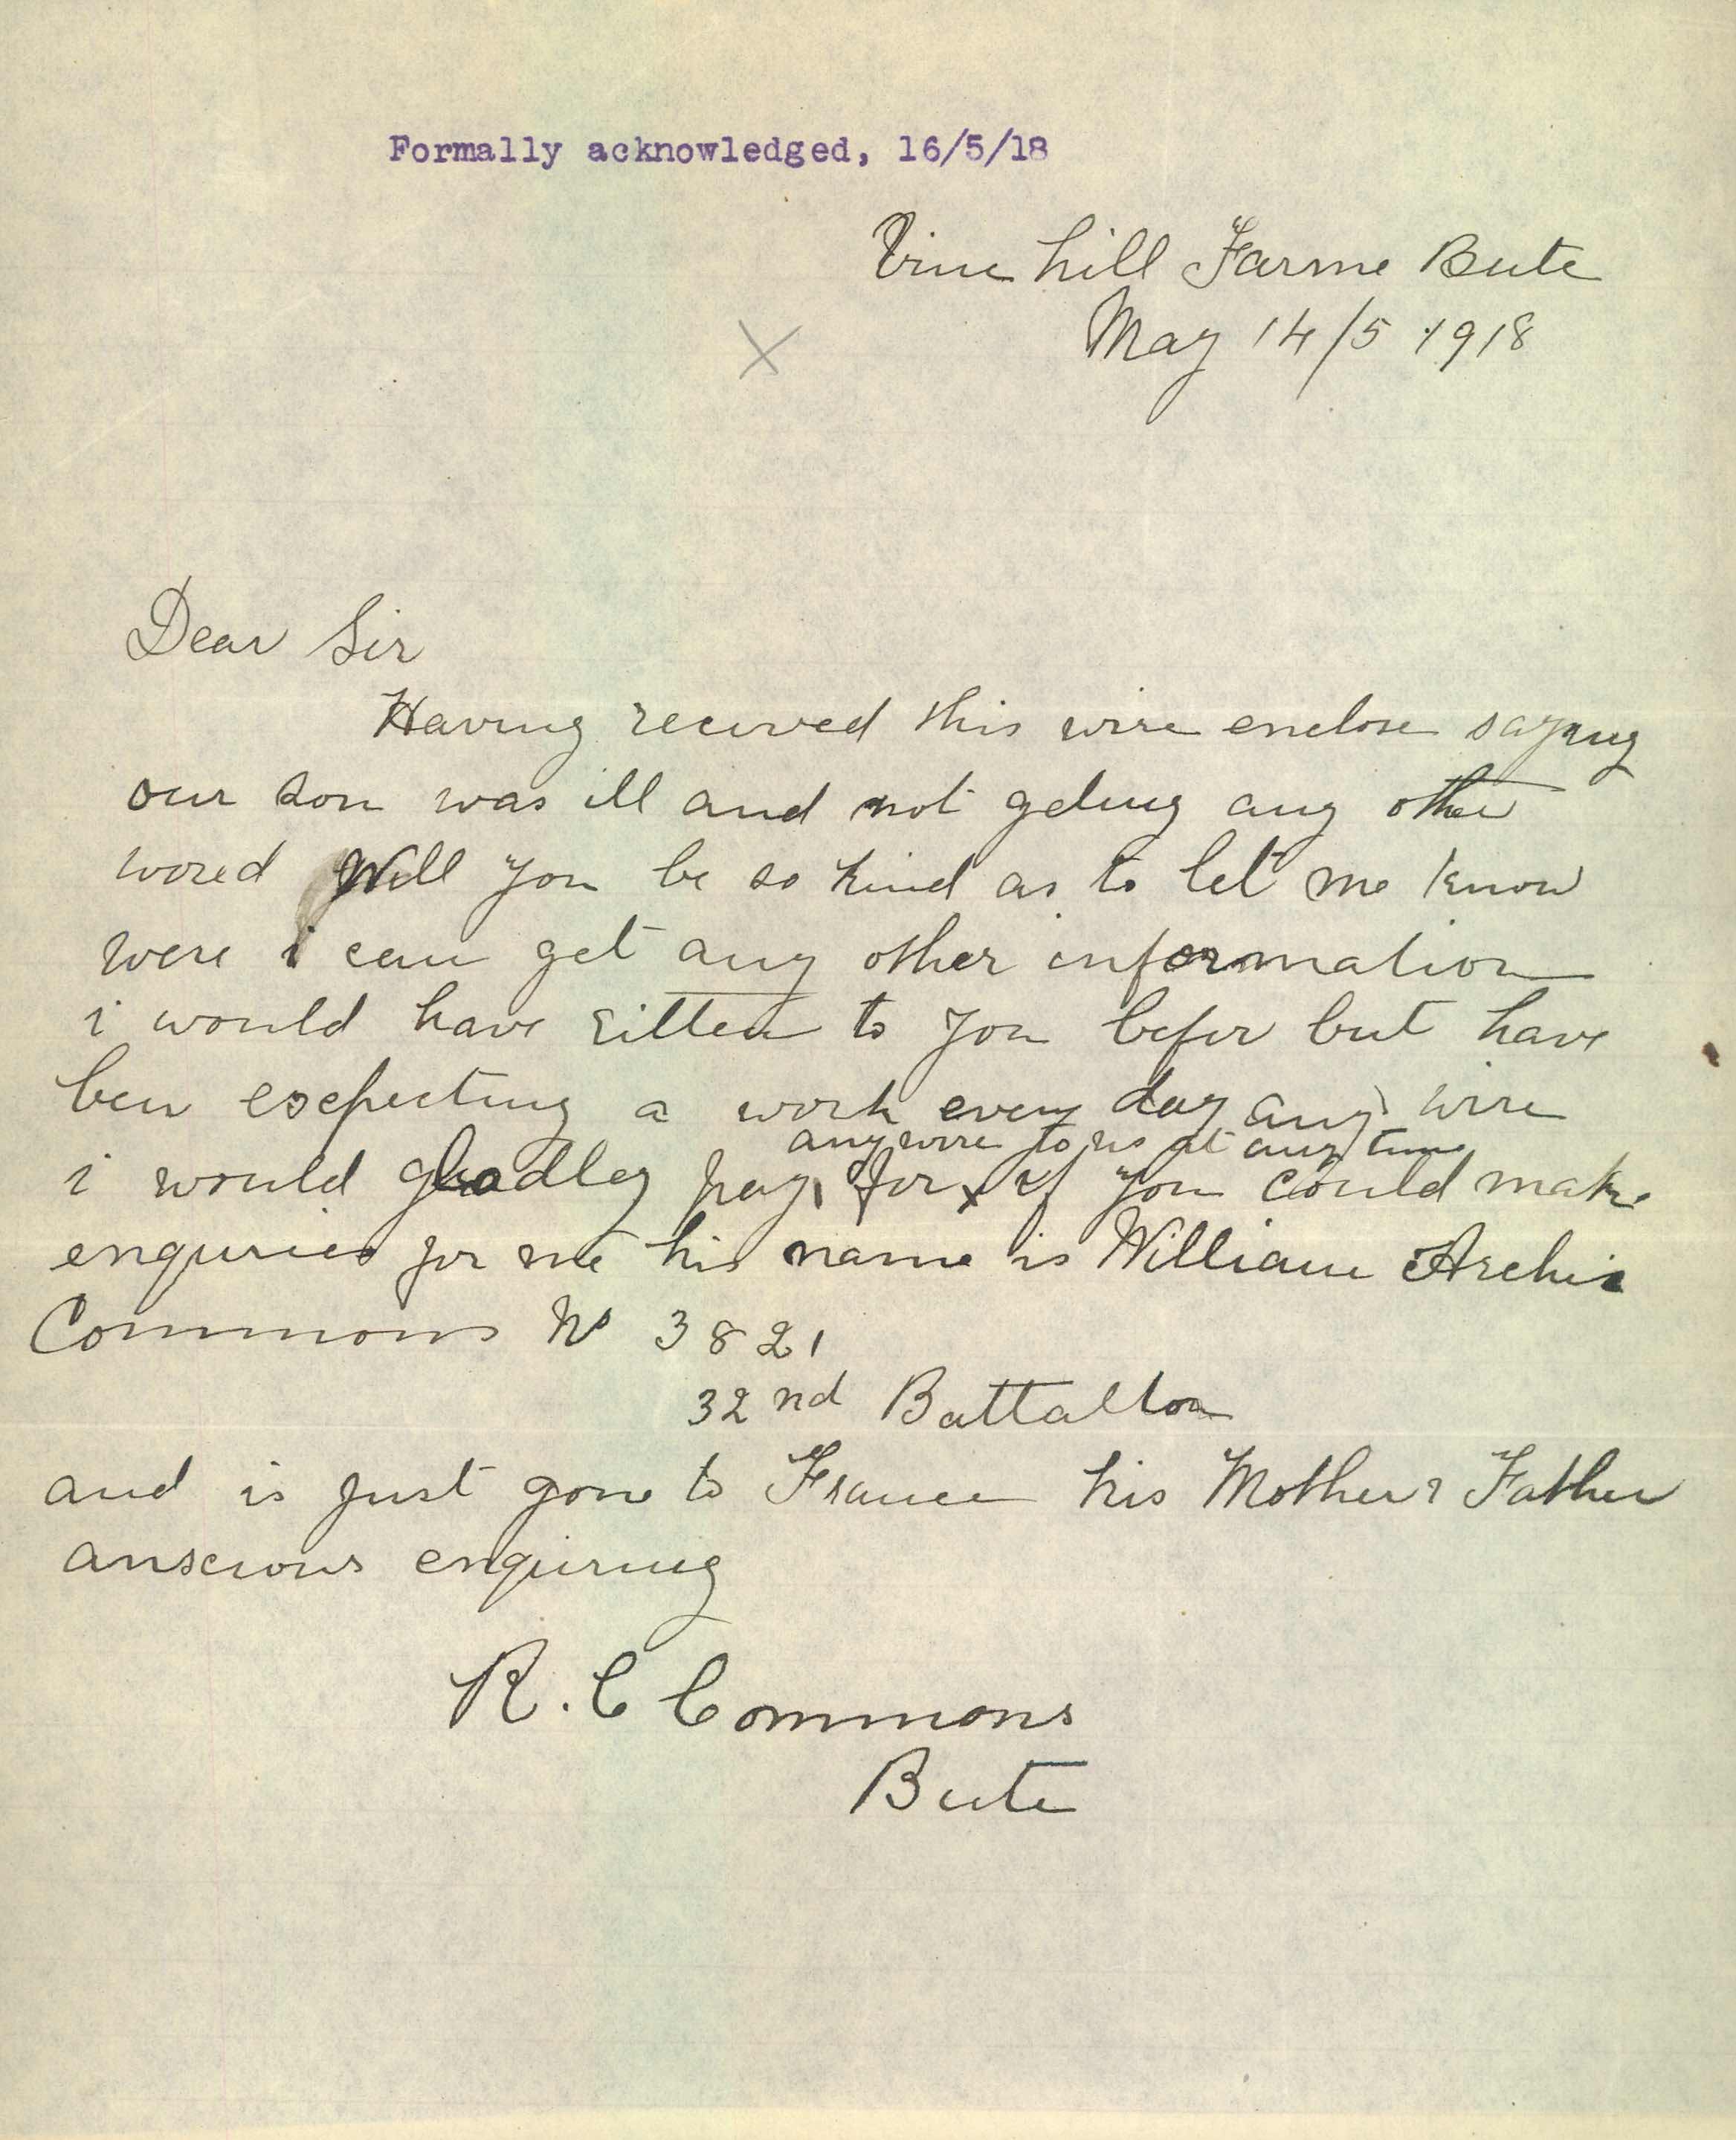 Formally acknowledged, 16/5/18
Vine hill Farme Bute
May 14/5 1918
Dear Sir
Having recieved this wire enclose saying
our son was ill and not geting any other
wored Will you be so kind as to let me know
were i can get any other information
i would have ritten to you befor but have
ben exspecting a work every day any wire
any wire to us at any time
i would gladley pay for x if you could make
enquries for me his name is William Archie
Commons No 3821
32nd Battallon
and is just gone to France his Mother & Father
anxcious enquring
R. C Commons
Bute